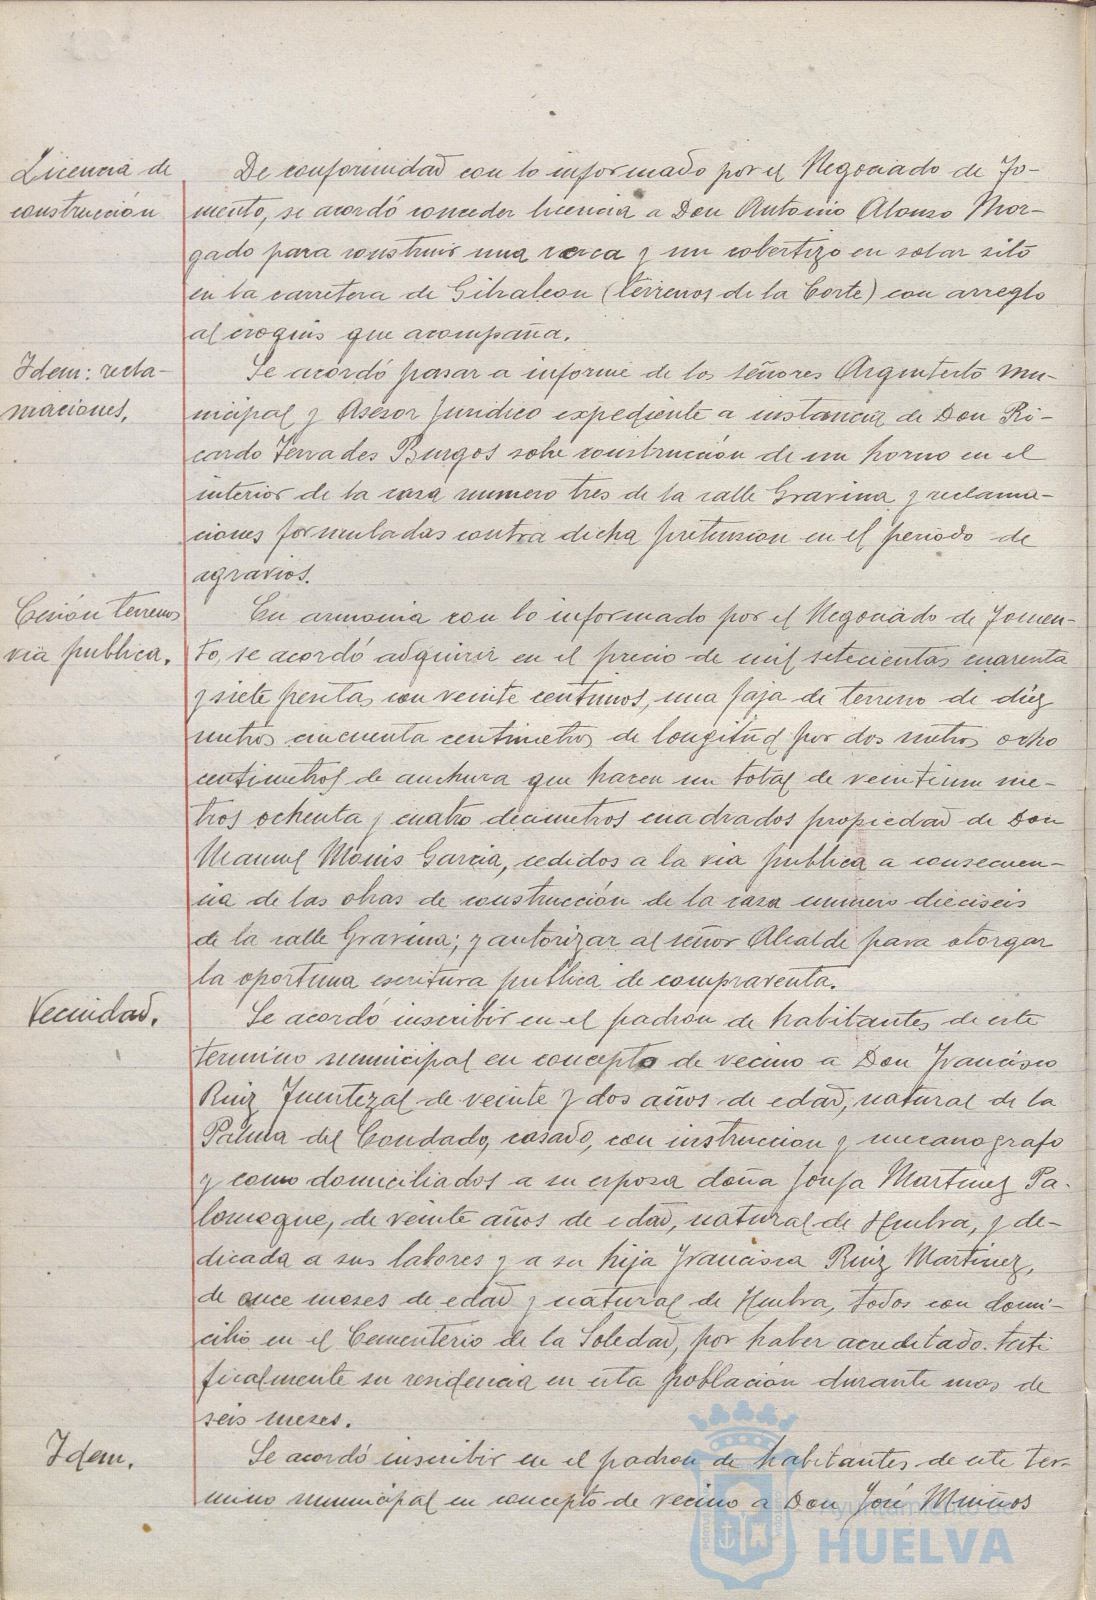 Licencia de
construcción
De conformidad con lo informado por el Negociado de Fo-
mento, se acordó conceder licencia a Don Antonio Alonso Mor-
gado para construir una cerca y un cobertizo en solar sito
en la carretera de Gibraleon (terrenos de la Corte) con arreglo
al croquis que acompaña.
Idem: recla-
maciones.
Se acordó pasar a informe de los señores Arquitecto mu-
nicipal y Asesor Juridico expediente a instancia de Don Ri-
cardo Terrades Burgos sobre construcción de un horno en el
interior de la casa numero tres de la calle Gravina y reclama-
ciones formuladas contra dicha pretension en el periodo de
agravios.
Cesión terrenos
via publica.
En armonia con lo informado por el Negociado de Fomen-
to, se acordó adquirir en el precio de mil setecientas cuarenta
y siete pesetas con veinte centimos, una faja de terreno de diez
metros cincuenta centimetros de longitud por dos metros ocho
centimetros de anchura que hacen un total de veintiun me-
tros ochenta y cuatro decimetros cuadrados propiedad de Don
Manuel Monis Garcia, cedidos a la via publica a consecuen-
cia de las obras de construcción de la casa numero dieciseis
de la calle Gravina; y autorizar al señor Alcalde para otorgar
la oportuna escritura publica de compraventa.
Vecindad.
Se acordó inscribir en el padron de habitantes de este
termino municipal en concepto de vecino a Don Francisco
Ruiz Fuentezal de veinte y dos años de edad, natural de la
Palma del Condado, casado, con instruccion y mecanografo
y como domiciliados a su esposa doña Josefa Martinez Pa-
lomeque, de veinte años de edad, natural de Huelva, y de-
dicada a sus labores y a su hija Francisca Ruiz Martinez,
de once meses de edad y natural de Huelva, todos con domi-
cilio en el Cementerio de la Soledad, por haber acreditado testi
ficalmente su residencia en esta población durante mas de
seis meses.
Idem.
Se acordó inscribir en el padron de habitantes de este ter-
mino municipal en concepto de vecino a Don José Muiños
Ayuntamiento de
HUELVA